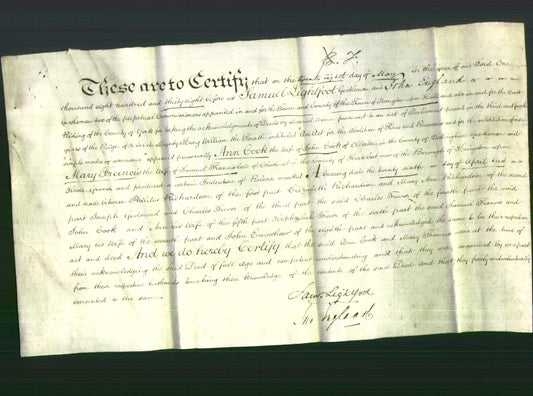 These are to Certify that on the twenty eight day of May in the year of our Lord One
thousand eight hundred and thirty eight before us Samuel Lightfoot Gentleman and John England
Gentleman two of the perpetual Commissioners appointed in and for the Town and County of the Town of Kingston upon Hull and also in and for the East
Riding of the County of York for taking the acknowledgments of Deeds by Married Women pursuant to an act of Parliament passed in the third and fourth
years of the Reign of his late Majesty King William the Fourth intituled An Act for the Abolition of Fines and Recoveries and for the substitution of more
simple modes of assurance appeared personally Ann Cook the wife of John Cook of in the County of Nottingham Gentleman and
Mary Francis the wife of Samuel Francis late of in the County of but now of the Borough of Kingston upon
Hull and produced a certain Indenture of Release marked A bearing date the twenty sixth day of April
and made between Richardson of the first part Elizabeth Richardson and Mary Ann Richardson of the second
part Joseph and Charles Trevor of the third part the said Charles Trevor of the fourth part the said
John Cook and Ann his wife of the fifth part Trevor of the sixth part the said Samuel Francis and
Mary his wife of the seventh part and John of the eighth part and acknowledged the same to be their respective
act and deed And we do hereby Certify that the said Ann Cook and Mary Francis were at the time of
their acknowledging the said Deed of full age and competent understanding and that they were examined by us apart
from their respective husbands touching their knowledge of the contents of the said Deed and that they freely and voluntarily
consented to the same
Sam Lightfoot
Jno England